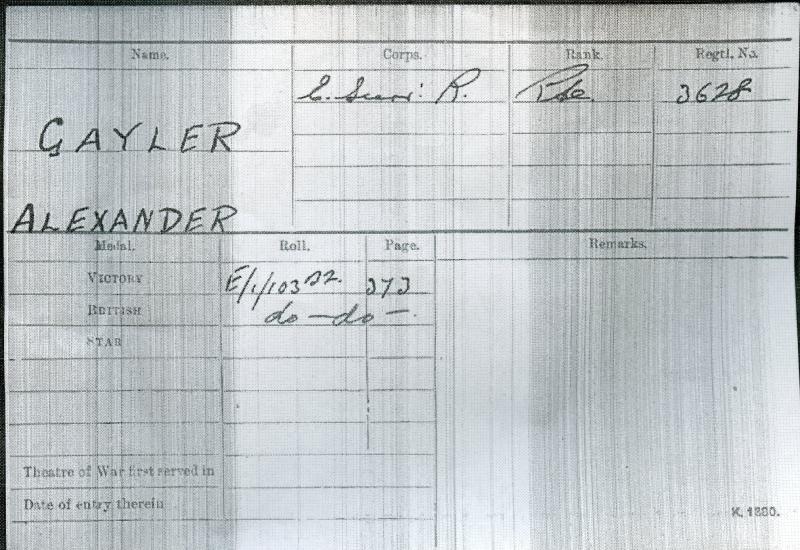 Name. Corps. Rank. Regtl. No.
E. Surr: R. Pte. 3628
GAYLER
ALEXANDER
Medal. Roll. Page. Remarks.
VICTORY E/1/103 B2. 373
BRITISH do — do —.
STAR
Theatre of War first served in
Date of entry therein
K. 1380.